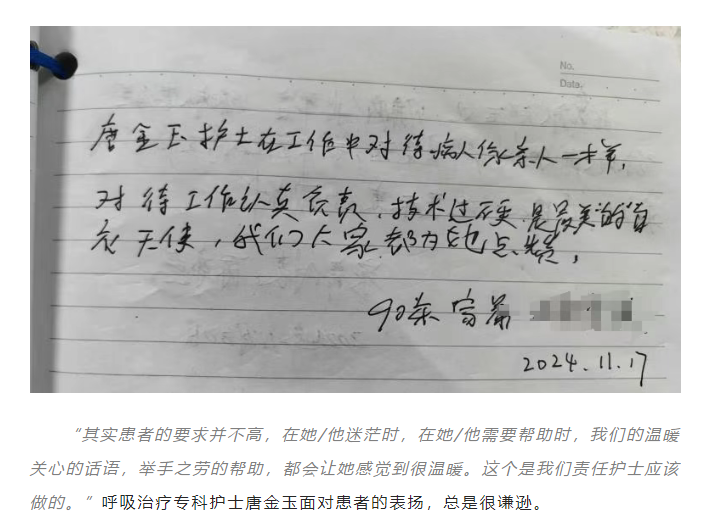 No.
Data:
唐金玉护士在工作中对待病人像亲人一样,
对待工作认真负责,技术过硬,是最美的白
衣天使,我们大家都为她点赞,
90床 家属
2024.11.17
“其实患者的要求并不高,在她/他迷茫时,在她/他需要帮助时,我们的温暖
关心的话语,举手之劳的帮助,都会让她感觉到很温暖。这个是我们责任护士应该
做的。”呼吸治疗专科护士唐金玉面对患者的表扬,总是很谦逊。